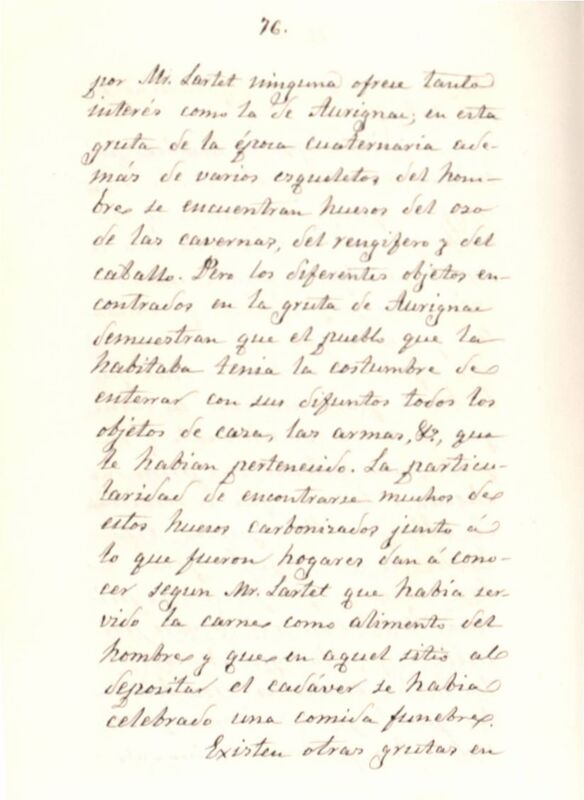 76.
por Mr. Lartet ninguna ofrese tanto
interés como la de Aurignac; en esta
gruta de la época cuaternaria ade-
más de varios esqueletos del hom-
bre se encuentran huesos del oso
de las cavernas, del rengifero y del
caballo. Pero los diferentes objetos en-
contrados en la gruta de Aurignac
demuestran que el pueblo que la
habitaba tenia la costumbre de
enterrar con sus difuntos todos los
objetos de casa, las armas, &ª, que
le habian pertenesido. La particu-
laridad de encontrarse muchos de
estos huesos carbonizados junto á
lo que fueron hogares dan á cono-
cer segun Mr. Lartet que habia ser-
vido la carne como alimento del
hombre y que en aquel sitio al
depositar el cadáver se habia
celebrado una comida funebre.
Existen otras grutas en